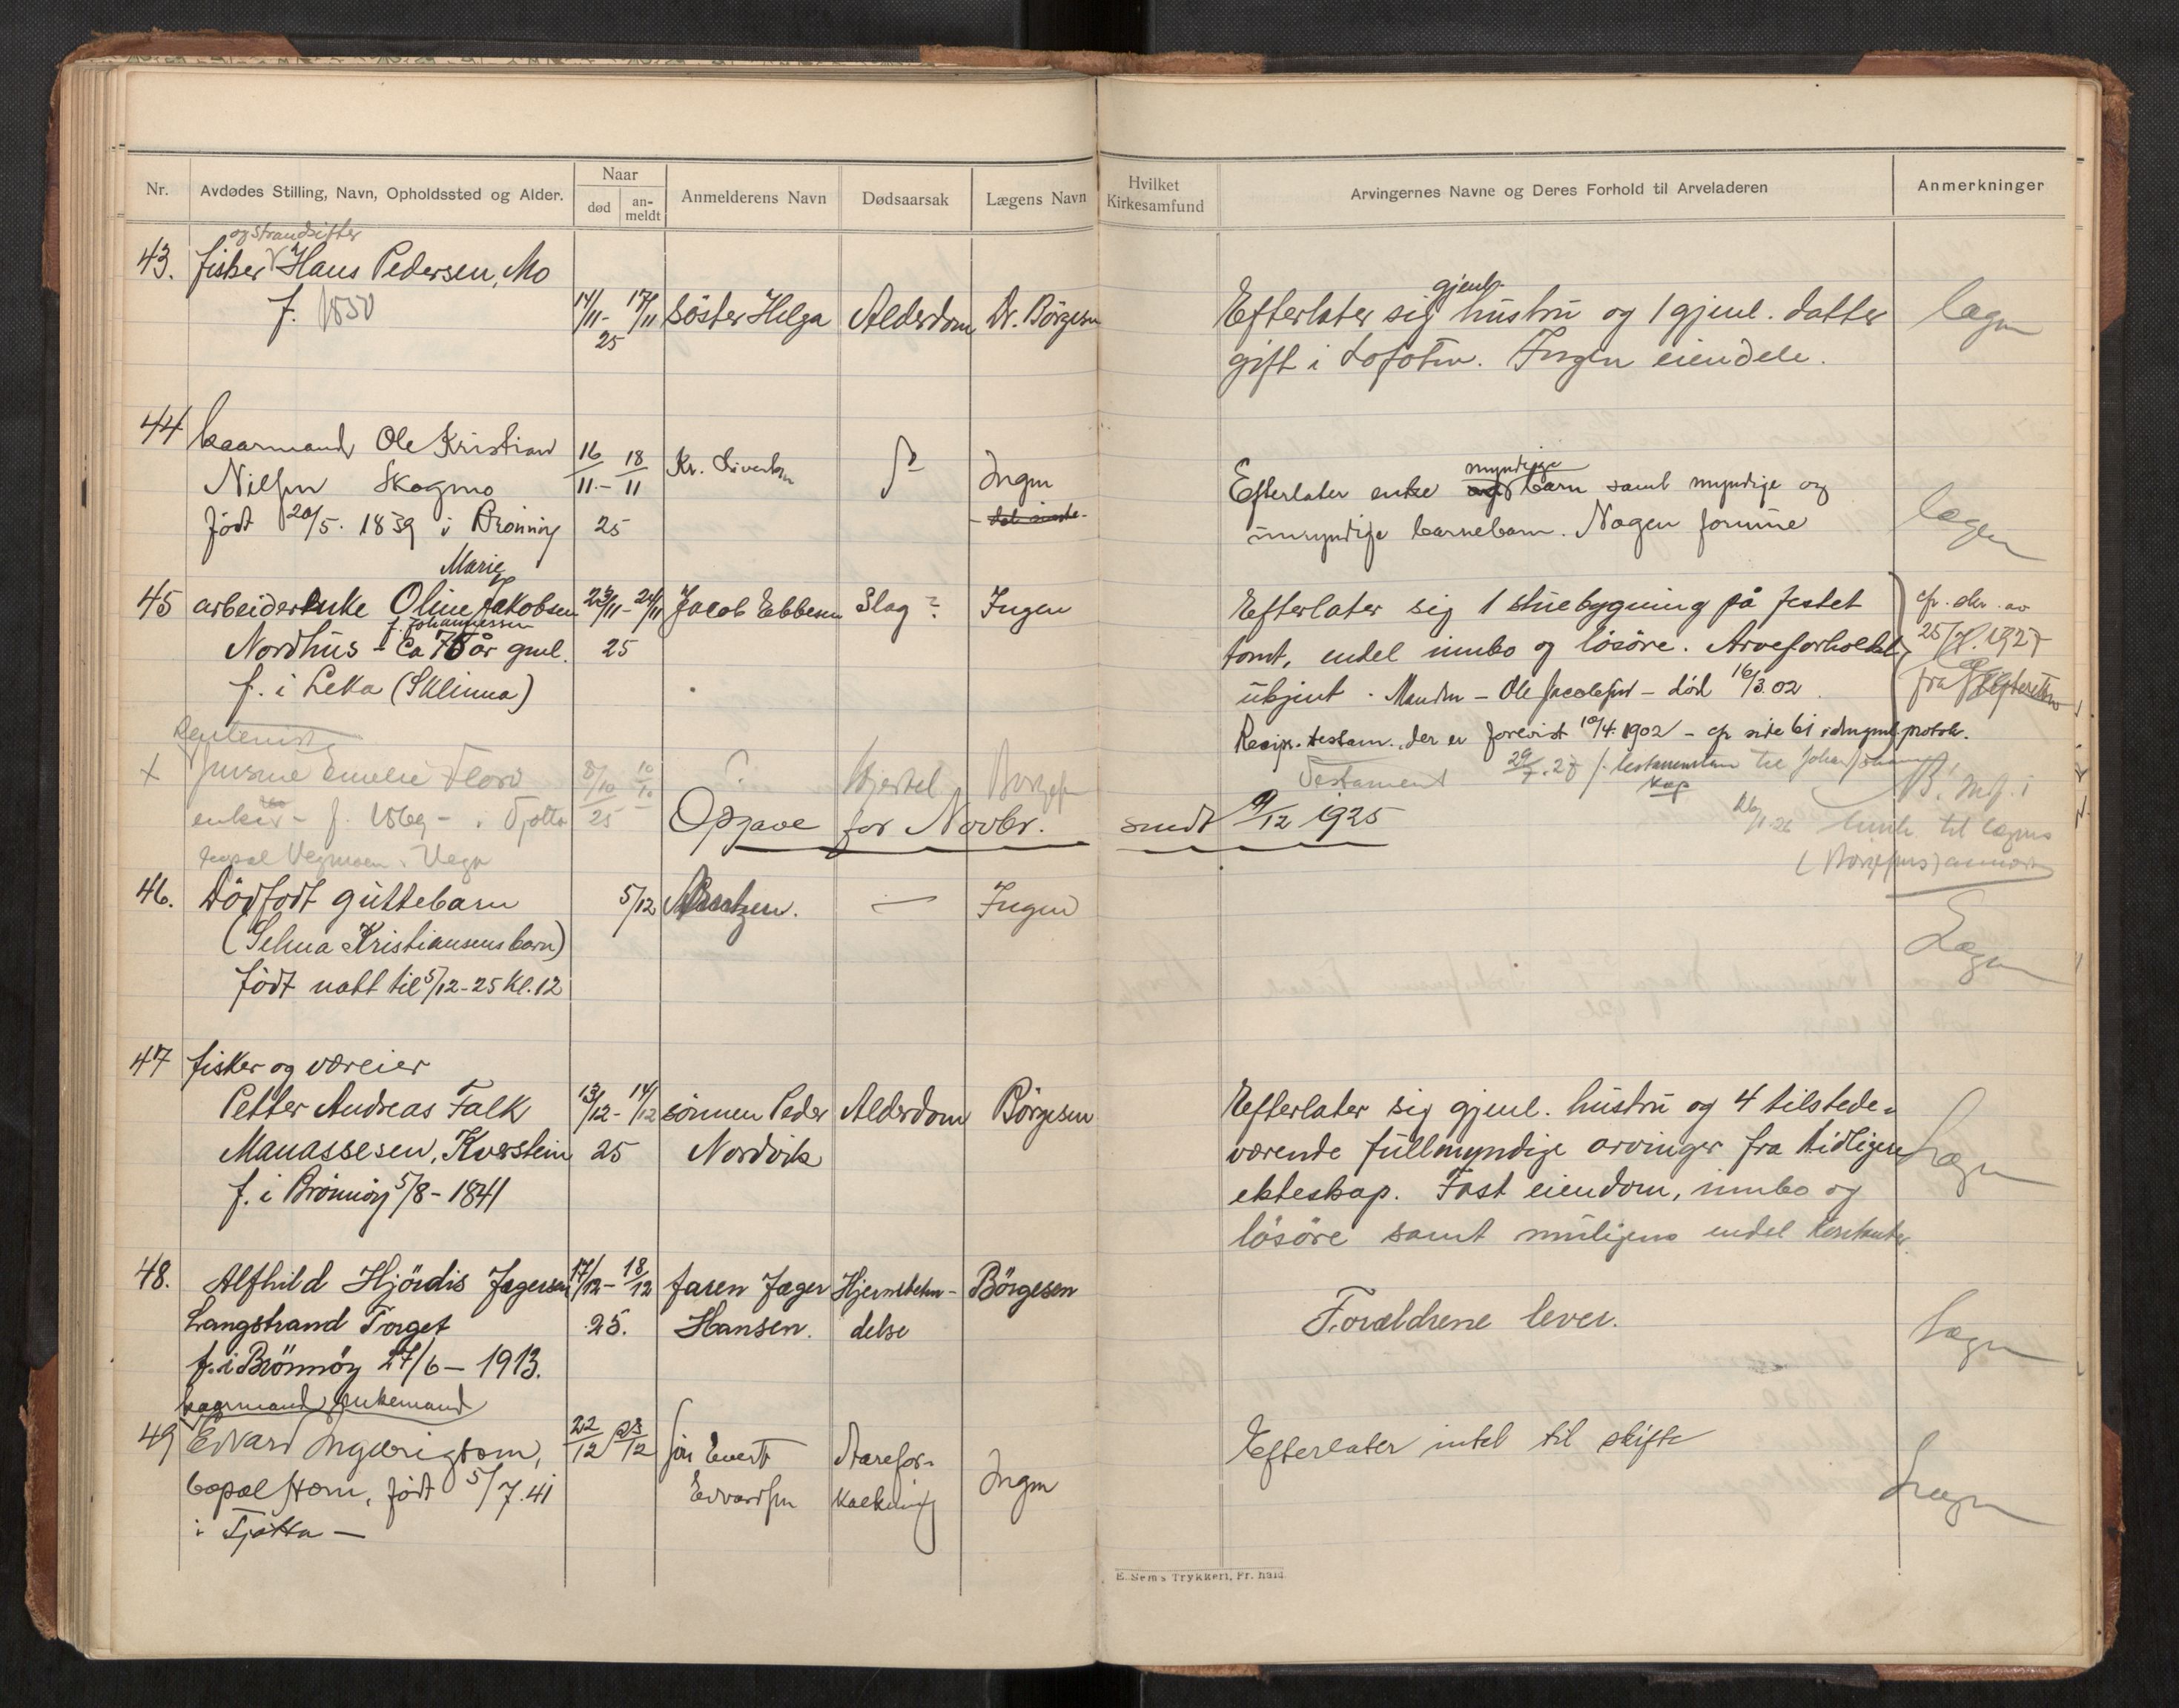 Nr.
Avdødes Stilling, Navn, Opholdssted og Alder.
Naar
død
an-
meldt
Anmelderens Navn
Dødsaarsak
Lægens Navn
Hvilket
Kirkesamfund
Arvingernes Navne og Deres Forhold til Arveladeren
Anmerkninger
og strandsitter
43. fisker Hans Pedersen, Mo
f. 1830
14/11 - 17/11 25 søster Helga Alderdom Dr. Börgesen
gjenl.
Efterlater sig hustru og 1 gjenl. datter
gift i Lofoten. Ingen eiendele.
44 kaarmand Ole Kristian
Nilsen Skogmo
født 20/5. 1839 i Brønnøy
16/11 - 18/11 25 Kr. Ingen
myndige
Efterlater enke og barn samt myndige og
umyndige barnebarn. Nogen formue
Marie
45 arbeiderenke Oline Jakobsen
f. Johannessen
Nordhus - ca 75 år gml.
f. i Leka (Sklinna)
23/11 - 24/11 25 Jacob Ebbesen Slag? Ingen
Efterlater sig 1 stuebygning på festet
tomt, endel innbo og løsøre. Arveforholdet
ukjent. Manden - Ole Jacobsen - død 16/3.02.
Recipr. testam. der er forevist 10/4 1902 - cfr side 61 i protok.
cfr. skr. av
25/7. 1927
fra
Testament 29/7.27
Rentenist
x Emelie Floro
enke - f. 1869 - i Tjøtta
bopæl Vegmoen, Vega
8/10 10/10 25 ? Hjertel. Borgesen
Opgave for Novbr. sendt 9/12 1925
til lægens
46. Dødfødt guttebarn
(Selma Kristiansens barn)
født natt til 5/12-25 kl. 12
5/12 — Ingen
Lægen
47 fisker og væreier
Petter Andreas Falk
Manassesen, Kvarstein
f. i Brønnøy 5/8 - 1841
13/12 - 14/12 25 sønnen Peder
Nordvik
Alderdom Börgesen
Efterlater sig gjenl. hustru og 4 tilstede-
værende fullmyndige arvinger fra tidligere
ekteskap. Fast eiendom, innbo og
løsøre samt muligens endel kontanter.
Lægen
48. Alfhild Hjördis Jægersen
Langstrand Torget
f. i Brønnøy 27/6 - 1913.
17/12 - 18/12 25. faren Jæger
Hansen.
Hjernebetæn-
delse
Börgesen
Forældrene lever.
Lægen
kaarmand, enkemand
49 Edvard Ingebrigtsen,
bopæl Horn, født 5/7.41
i Tjøtta —
22/12 23/12 søn Evert
Edvardsen
Aarefor-
kalkning
Ingen
Efterlater intet til skifte
Lægen
E. Sem's Trykkeri, Fr. hald.